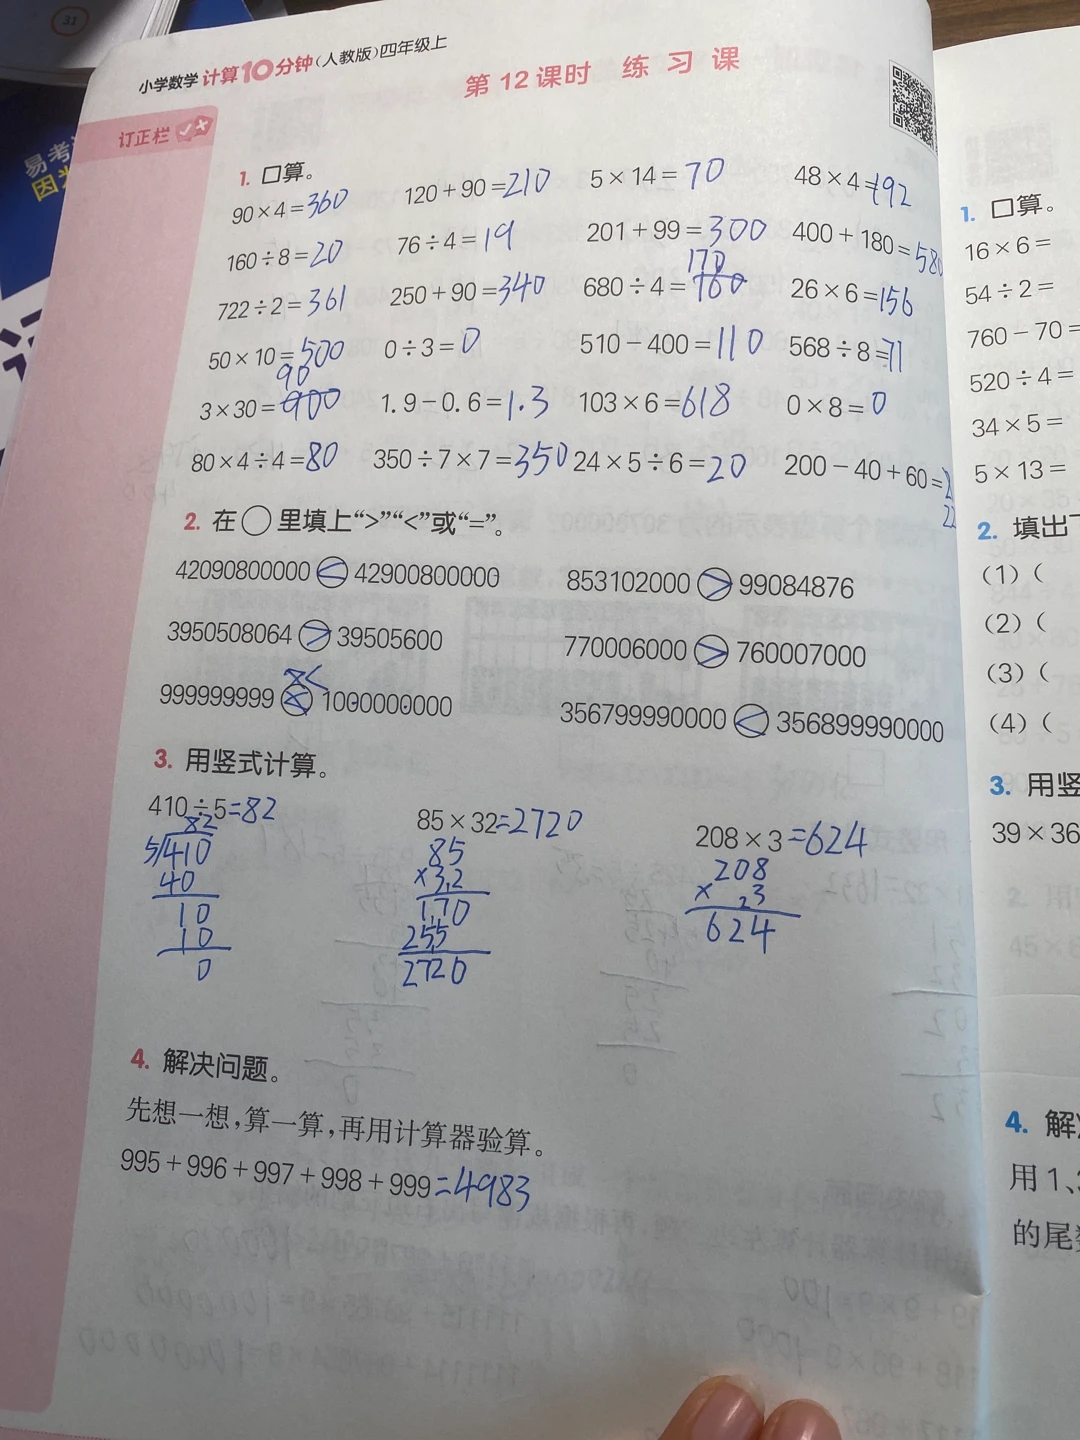 31
易考
因为
小学数学 计算10分钟(人教版)四年级上
第12课时 练习课
订正栏
1. 口算。
90×4=360 120+90=210 5×14=70 48×4=192
160÷8=20 76÷4=19 201+99=300 400+180=580
170
722÷2=361 250+90=340 680÷4=160 26×6=156
50×10=500 0÷3=0 510-400=110 568÷8=71
90
3×30=900 1.9-0.6=1.3 103×6=618 0×8=0
80×4÷4=80 350÷7×7=350 24×5÷6=20 200-40+60=
2. 在○里填上“>”“<”或“=”。
42090800000 < 42900800000 853102000 > 99084876
3950508064 > 39505600 770006000 > 760007000
<
999999999 1000000000 356799990000 < 356899990000
3. 用竖式计算。
410÷5=82 85×32=2720 208×3=624
82 85 208
5/410 ×32 × 23
40 170 624
10 255
10 2720
0
4. 解决问题。
先想一想,算一算,再用计算器验算。
995+996+997+998+999=4983
1. 口算。
16×6=
54÷2=
760-70=
520÷4=
34×5=
5×13=
2. 填出
(1)(
(2)(
(3)(
(4)(
3. 用竖
39×36
4. 解
用1、
的尾数